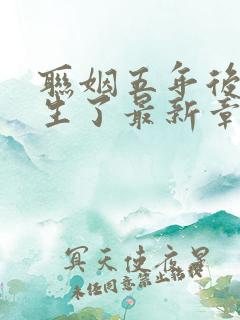 聯姻五年後
生了最新章
冥天使夜晨
未经同意禁止转载